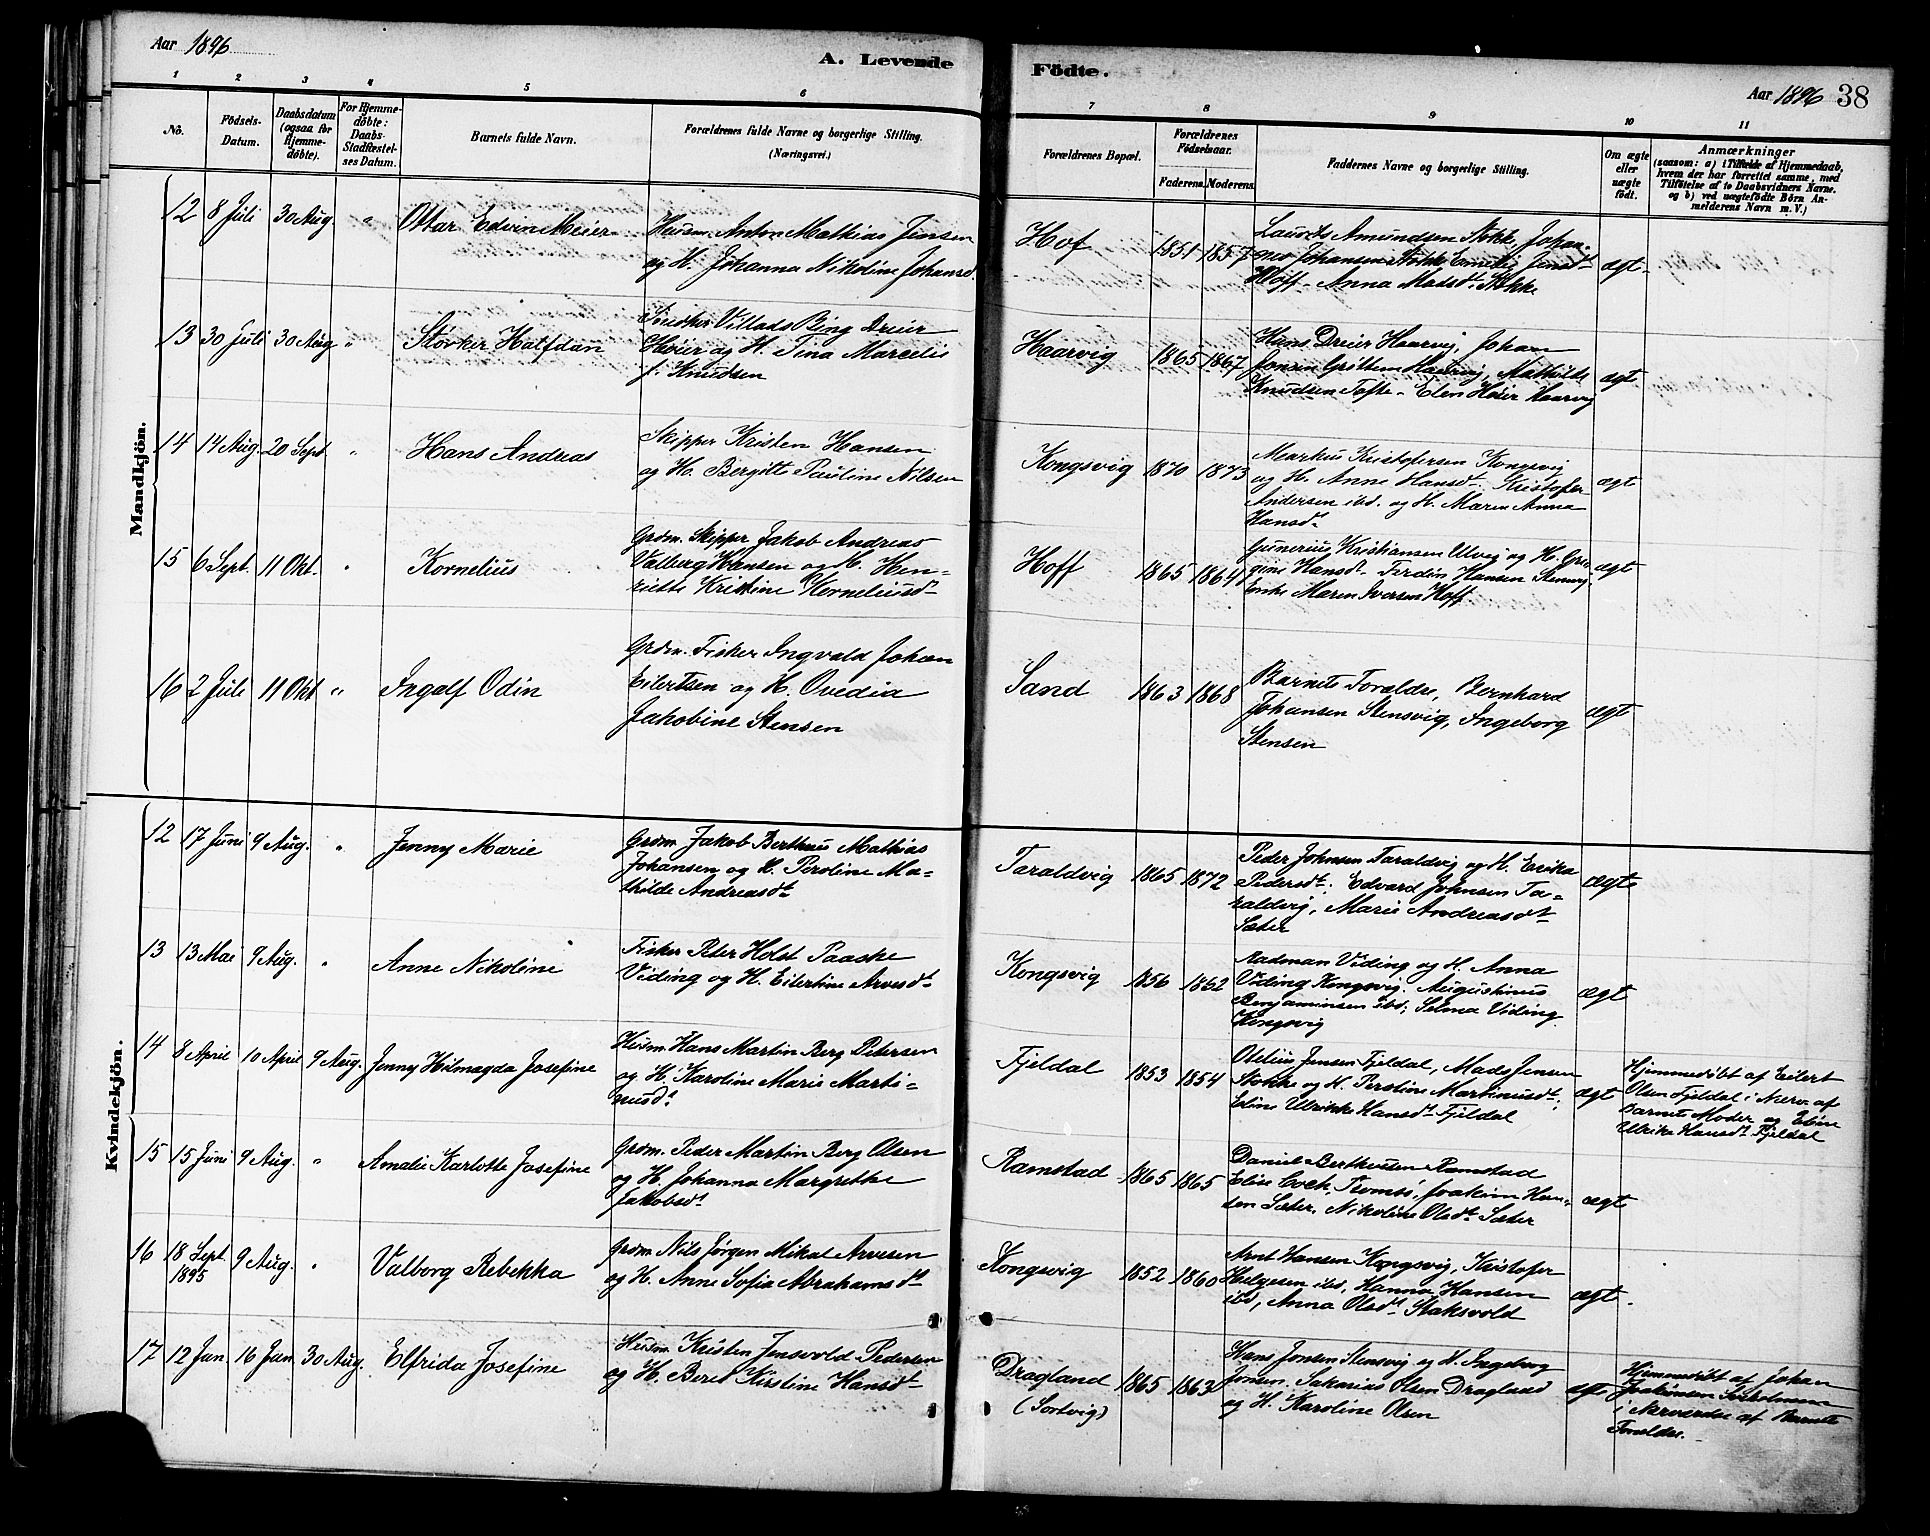 Aar 1896
A. Levende
Födte.
Aar 1896 38
1 2 3 4 5 6 7 8 9 10 11
No.
Födsels-Datum.
Daabsdatum (ogsaa for Hjemme-døbte).
For Hjemme-døbte: Daabs-Stadfæstel-ses Datum.
Barnets fulde Navn.
Forældrenes fulde Navne og borgerlige Stilling.
(Næringsvei.)
Forældrenes Bopæl.
Forældrenes Födselsaar.
Faderens. Moderens.
Faddernes Navne og borgerlige Stilling.
Om ægte eller uægte født.
Anmærkninger
(saasom: a) i Tilfælde af Hjemmedaab,
hvem der har forrettet samme, med
Tilføielse af to Daabsvidners Navne.
og b) ved uægtefödte Börn An-
melderens Navn m. V.)
Mandkjön.
12 8 Juli 30 Aug. " Ottar Edvin Meier
Husm. Anton Mathias Jensen
og H. Johanna Nikoline Johansd.
Hof 1851 1857
Laurits Amundsen Stokke, Johan-
nes Johansen Stokke Emelie Jensdt
Hoff. Anna Madsdt. Stokke
ægt.
13 30 Juli 30 Aug " Størker Halfdan
Villads Bing Dreier
Høier og H. Tina Marcelie
f. Knudsen
Haarvig 1865 1867
Hans Dreier Haarvig, Johan
Jonsen Haarvig, Mathilde
Knudsen Tofte. Elen Høier Haarvig
ægt
14 14 Aug. 20 Sept " Hans Andreas
Skipper Kristen Hansen
og H. Bergitte Pauline Nilsen
Kongsvig 1870 1873
Markus Kristofersen Kongsvig
og H. Anne Hansdt. Kristofer
Andersen ibd. og H. Maren Anna
Hansdt
ægt
15 6 Sept. 11 Okt. " Kornelius
Grdm. Skipper Jakob Andreas
Valberg Hansen og H. Hen-
riette Kristine Korneliusdt
Hoff 1865 1864
Gunerius Kristiansen Ulvig og H. Gre-
gine Hansdt. Ferdin Hansen Stensvig.
Enke Maren Iversen Hoff.
ægt
16 2 Juli 11 Okt " Ingolf Odin
Grdm. Fisker Ingvald Johan
Eilertsen og H. Ovedia
Jakobine Stensen
Sand 1863 1868
Barnets Forældre, Bernhard
Johansen Stensvig, Ingeborg
Stensen
ægt
Kvindekjön.
12 17 Juni 9 Aug. " Jenny Marie
Grdm. Jakob Bertheus Mathias
Johansen og H. Peroline Ma-
thilde Andreasdt
Taraldvig 1865 1872
Peder Johnsen Taraldvig og H. Erika
Pedersdt; Edvard Johnsen Ta-
raldvig, Marie Andreasdt
Sæter
ægte
13 13 Mai 9 Aug. " Anne Nikoline
Fisker Peter Holst Paaske
Viding og H. Eilertine Arvesdt
Kongsvig 1856 1862
Radman Viding og H. Anna
Viding Kongsvig. Augustinus
Benjaminsen ibd; Selma Viding
Kongsvig
ægt
14 8 April 10 April 9 Aug. Jenny Hilmagda Josefine
Husm. Hans Martin Berg Petersen
og H. Karoline Marie Marti-
nusdt
Fjeldal 1853 1854
Otelius Jensen Fjeldal, Mads Jensen
Stokke og H. Peroline Martinusdt;
Eline Ulrikke Hansdt Fjeldal
ægt
Hjemmedøbt af Eilert
Olsen Fjeldal i Nærv. af
Barnets Moder og Eline
Ulrikke Hansdt Fjeldal
15 15 Juni 9 Aug. " Amalie Karlotte Josefine
Grdm. Peder Martin Berg Olsen
og H. Johanna Margrethe
Jakobsdt
Ramstad 1865 1865
Daniel Bertheusen Ramstad
Elise Coch, Tromsø, Joakim Han-
sen Sæter, Nikoline Olsdt Sæter
ægt
16 18 Sept. 1895 9 Aug. " Valborg Rebekka
Grdm. Nils Jørgen Mikal Arvesen
og H. Anne Sofia Abrahamsdt
Kongsvig 1852 1860
Arnt Hansen Kongsvig, Kristofer
Helgesen ibd, Hanna Hansen
ibd, Anna Olsdt Staksvold
ægt.
17 12 Jan. 16 Jan. 30 Aug. Elfrida Josefine
Husm. Kristen Jensvold Pedersen
og H. Beret Kirstine Hansdt
Dragland
(Sortvig)
1865 1863
Hans Jonsen Stensvig og H. Ingeborg
Jonsen. Sakarias Olsen Dragland
og H. Karoline Olsen
ægt
Hjemmedøbt af Johan
Joakimsen
i Nærværelse af Barnets
Forældre.